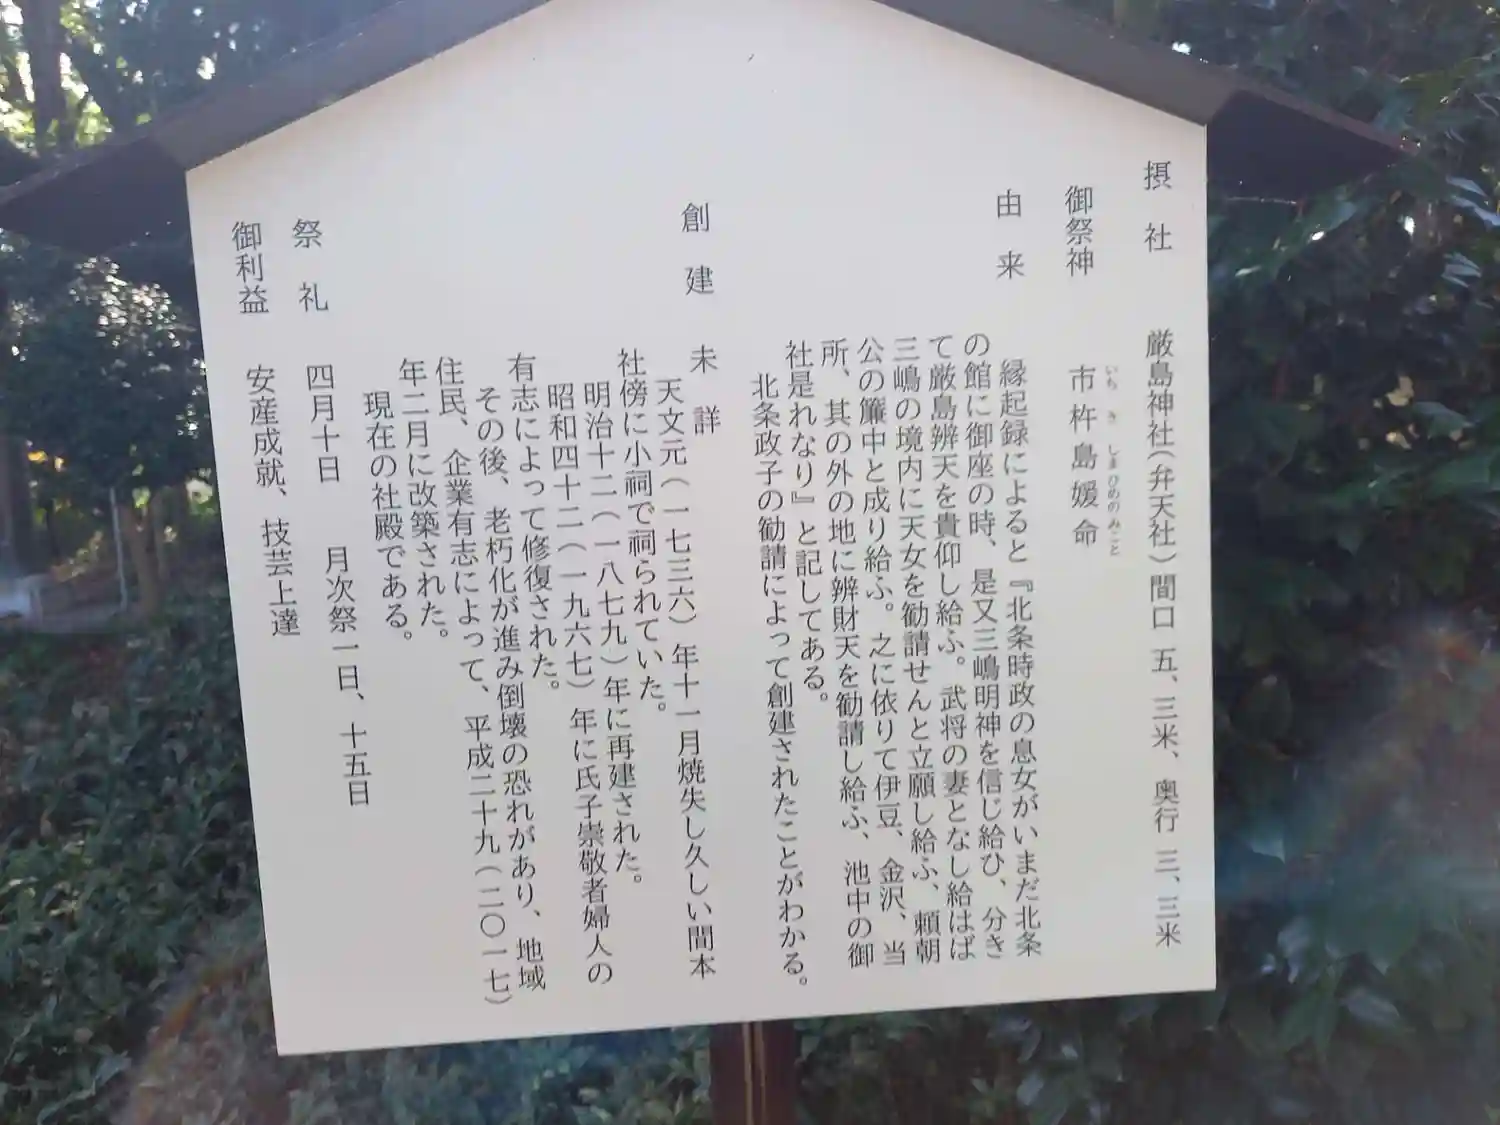 摂社 厳島神社(弁天社)間口 五、三米、奥行 三、三米
御祭神 市杵島媛命
いち き しまひめのみこと
由来 縁起録によると『北条時政の息女がいまだ北条
の館に御座の時、是又三嶋明神を信じ給ひ、分き
て厳島辨天を貴仰し給ふ。武将の妻となし給はば
三嶋の境内に天女を勧請せんと立願し給ふ、頼朝
公の簾中と成り給ふ。之に依りて伊豆、金沢、当
所、其の外の地に辨財天を勧請し給ふ、池中の御
社是れなり』と記してある。
北条政子の勧請によって創建されたことがわかる。
創建 未詳
天文元(一七三六)年十一月焼失し久しい間本
社傍に小祠で祠られていた。
明治十二(一八七九)年に再建された。
昭和四十二(一九六七)年に氏子崇敬者婦人の
有志によって修復された。
その後、老朽化が進み倒壊の恐れがあり、地域
住民、企業有志によって、平成二十九(二〇一七)
年二月に改築された。
現在の社殿である。
祭礼 四月十日 月次祭一日、十五日
御利益 安産成就、技芸上達